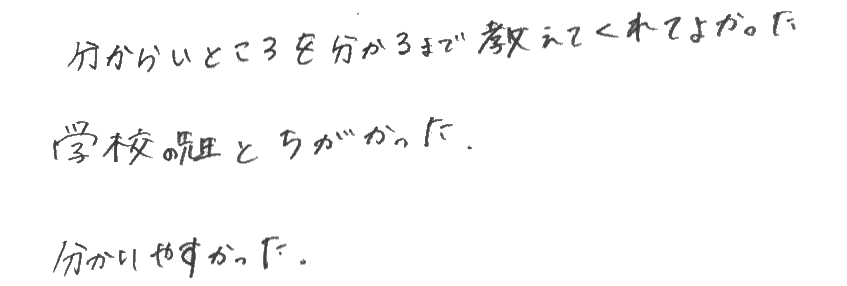 分からいところを分かるまで教えてくれてよかった
学校の先生とちがかった.
分かりやすかった.